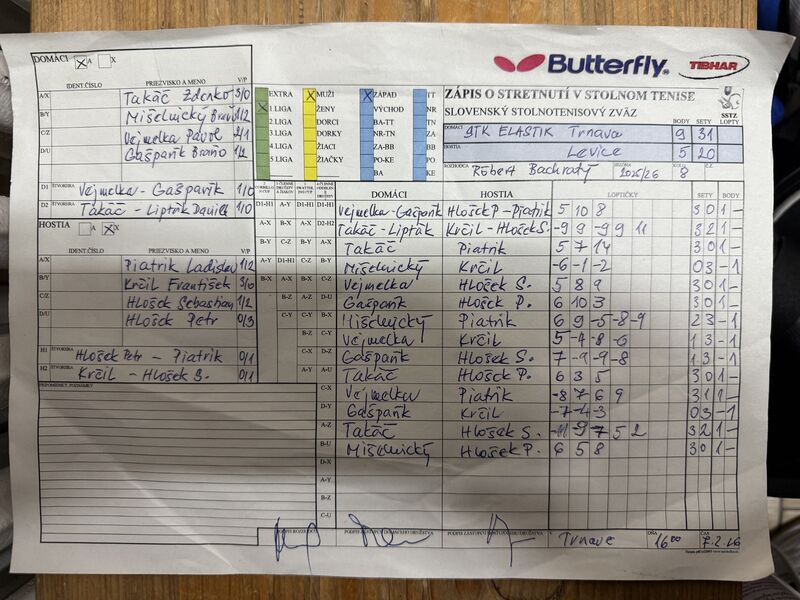 DOMÁCI A X
Butterfly
TIBHAR
IDENT.ČÍSLO PRIEZVISKO A MENO V/P
A/X Takáč Zdenko 3/0
B/Y Mišelnický Braňo 1/2
C/Z Vejmelka Pavol 2/1
D/U Gašparík Braňo 1/2
D1 ŠTVORHRA Vejmelka - Gašparík 1/0
D2 ŠTVORHRA Takáč - Lipták Daniel 1/0
HOSTIA A X
IDENT.ČÍSLO PRIEZVISKO A MENO V/P
A/X Piatrik Ladislav 1/2
B/Y Krčil František 3/0
C/Z Hlošek Sebastian 1/2
D/U Hlošek Petr 0/3
H1 ŠTVORHRA Hlošek Petr - Piatrik 0/1
H2 ŠTVORHRA Krčil - Hlošek S. 0/1
PRIPOMIENKY, POZNÁMKY
EXTRA MUŽI ZÁPAD TT
1.LIGA ŽENY VÝCHOD NR
2.LIGA DORCI BA-TT TN
3.LIGA DORKY NR-TN ZA
4.LIGA ŽIACI ZA-BB BB
5.LIGA ŽIAČKY PO-KE PO
BA KE
ZÁPIS O STRETNUTÍ V STOLNOM TENISE
SLOVENSKÝ STOLNOTENISOVÝ ZVÄZ
SSTZ
BODY SETY LOPTY
DOMÁCI STK ELASTIK Trnava 9 31
HOSTIA Levice 5 20
ROZHODCA Róbert Bachratý SEZÓNA 2025/26 8
DOMÁCI HOSTIA LOPTIČKY SETY BODY
D1-H1 A-Y D1-H1 Vejmelka-Gašparík Hlošek P - Piatrik 5 10 8 3 0 1 -
D2-H2 Takáč - Lipták Krčil - Hlošek S. -9 9 -9 9 11 3 2 1 -
Takáč Piatrik 5 7 14 3 0 1 -
Mišelnický Krčil -6 -1 -2 0 3 - 1
Vejmelka Hlošek S. 5 8 9 3 0 1 -
Gašparík Hlošek P. 6 10 3 3 0 1 -
Mišelnický Piatrik 6 9 -5 -8 -9 2 3 - 1
Vejmelka Krčil 5 -4 -8 -6 1 3 - 1
Gašparík Hlošek S. 7 -9 -9 -8 1 3 - 1
A-U Takáč Hlošek P. 6 3 5 3 0 1 -
C-X Vejmelka Piatrik -8 7 6 9 3 1 1 -
D-Y Gašparík Krčil -7 -4 -3 0 3 - 1
A-Z Takáč Hlošek S. -11 -9 7 5 2 3 2 1 -
B-U Mišelnický Hlošek P. 6 5 8 3 0 1 -
D-X
A-Y
B-Z
C-U
PODPIS ROZHODCU
PODPIS ZÁSTUPCU DOMÁCEHO DRUŽSTVA
PODPIS ZÁSTUPCU HOSŤUJÚCEHO DRUŽSTVA
Trnave DŇA 16:00 ČAS 7.2.26